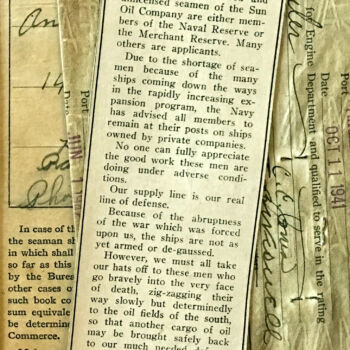 unlicensed seamen of the Sun
Oil Company are either mem-
bers of the Naval Reserve or
the Merchant Reserve. Many
others are applicants.
Due to the shortage of sea-
men because of the many
ships coming down the ways
in the rapidly increasing ex-
pansion program, the Navy
has advised all members to
remain at their posts on ships
owned by private companies.
No one can fully appreciate
the good work these men are
doing under adverse condi-
tions.
Our supply line is our real
line of defense.
Because of the abruptness
of the war which was forced
upon us, the ships are not as
yet armed or de-gaussed.
However, we must all take
our hats off to these men who
go bravely into the very face
of death, zig-zagging their
way slowly but determinedly
to the oil fields of the south,
so that another cargo of oil
may be brought safely back
to our much needed
In case of th
the seaman sh
in which shall
so far as this
by the Burea
other cases o
such book co
sum equivale
be determine
Commerce.
Port
JUN
Port
for Engine Department and qualified to serve in the rating
Date OCT 11 1941
Port